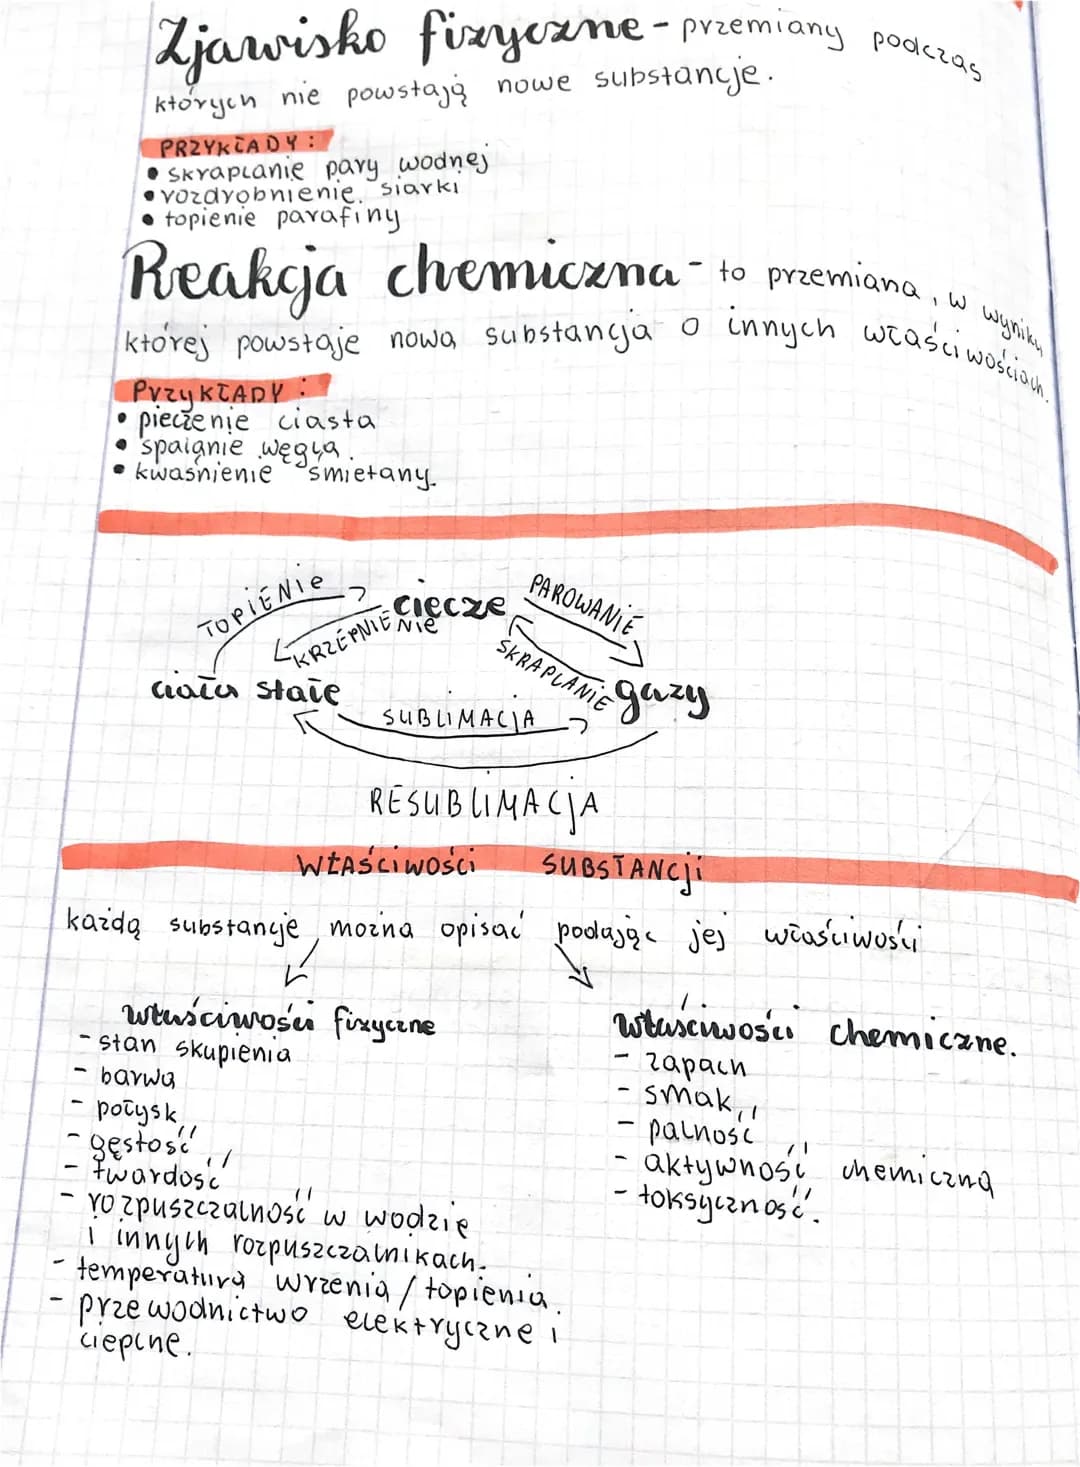 Zjawisko fizyczne - przemiany podczas
których nie powstają nowe substancje.
PRZYKŁADY:
• skraplanie pary wodnej
• rozdrobnienie siarki
• topienie parafiny
Reakcja chemiczna - to przemiana, w wyniku
której powstaje nowa substancja o innych właściwościach.
PrzyKŁADY:
• pieczenie ciasta
• spalanie węgla.
• kwaśnienie śmietany.
TOPIENIE
ciecze
PAROWANIE
KRZEPNIĘNIE
SKRAPLANIE
ciała stałe
gazy
SUBLIMACJA
RESUBLIMACJA
WŁAŚCIWOŚCI SUBSTANCJI
każdą substancję można opisać podając jej właściwości
właściwości fizyczne
- stan skupienia
- barwa
- połysk
- gęstość
- twardość
- rozpuszczalność w wodzie
i innych rozpuszczalnikach.
- temperatura wrzenia / topienia.
- przewodnictwo elektryczne i
cieplne.
właściwości chemiczne.
- zapach
- smak
- palność
- aktywność chemiczna
- toksyczność.